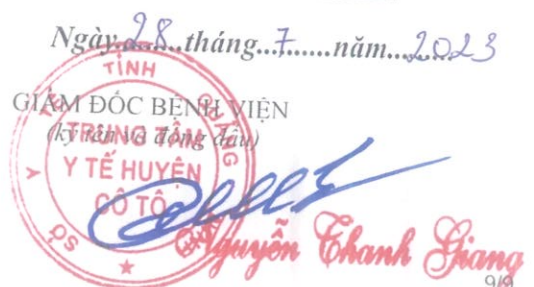 Ngày.28.tháng..7.....năm...2023
GIÁM ĐỐC BỆNH VIỆN
(ký tên và đóng dấu)
SỞ Y TẾ TỈNH QUẢNG
TRUNG TÂM
Y TẾ HUYỆN
CÔ TÔ
★
Nguyễn Thanh Giang
9/9